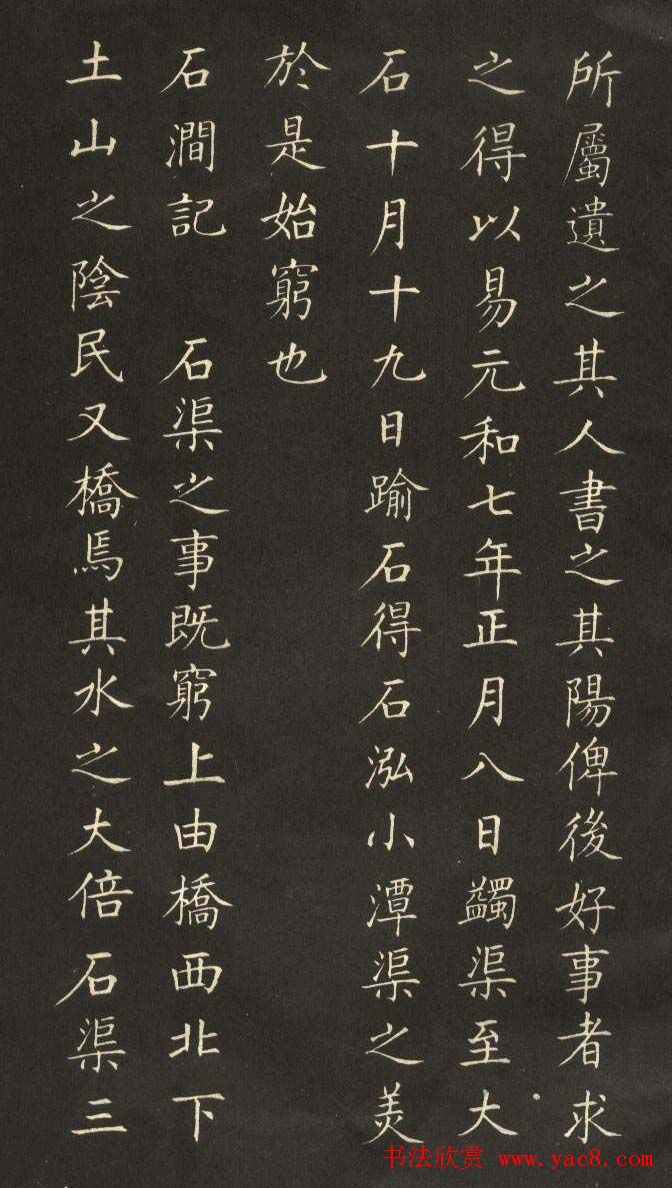 所屬遺之其人書之其陽俾後好事者求
之得以易元和七年正月八日蠲渠至大
石十月十九日踰石得石泓小潭渠之美
於是始窮也
石澗記 石渠之事既窮上由橋西北下
土山之陰民又橋焉其水之大倍石渠三
书法欣赏 www.yac8.com